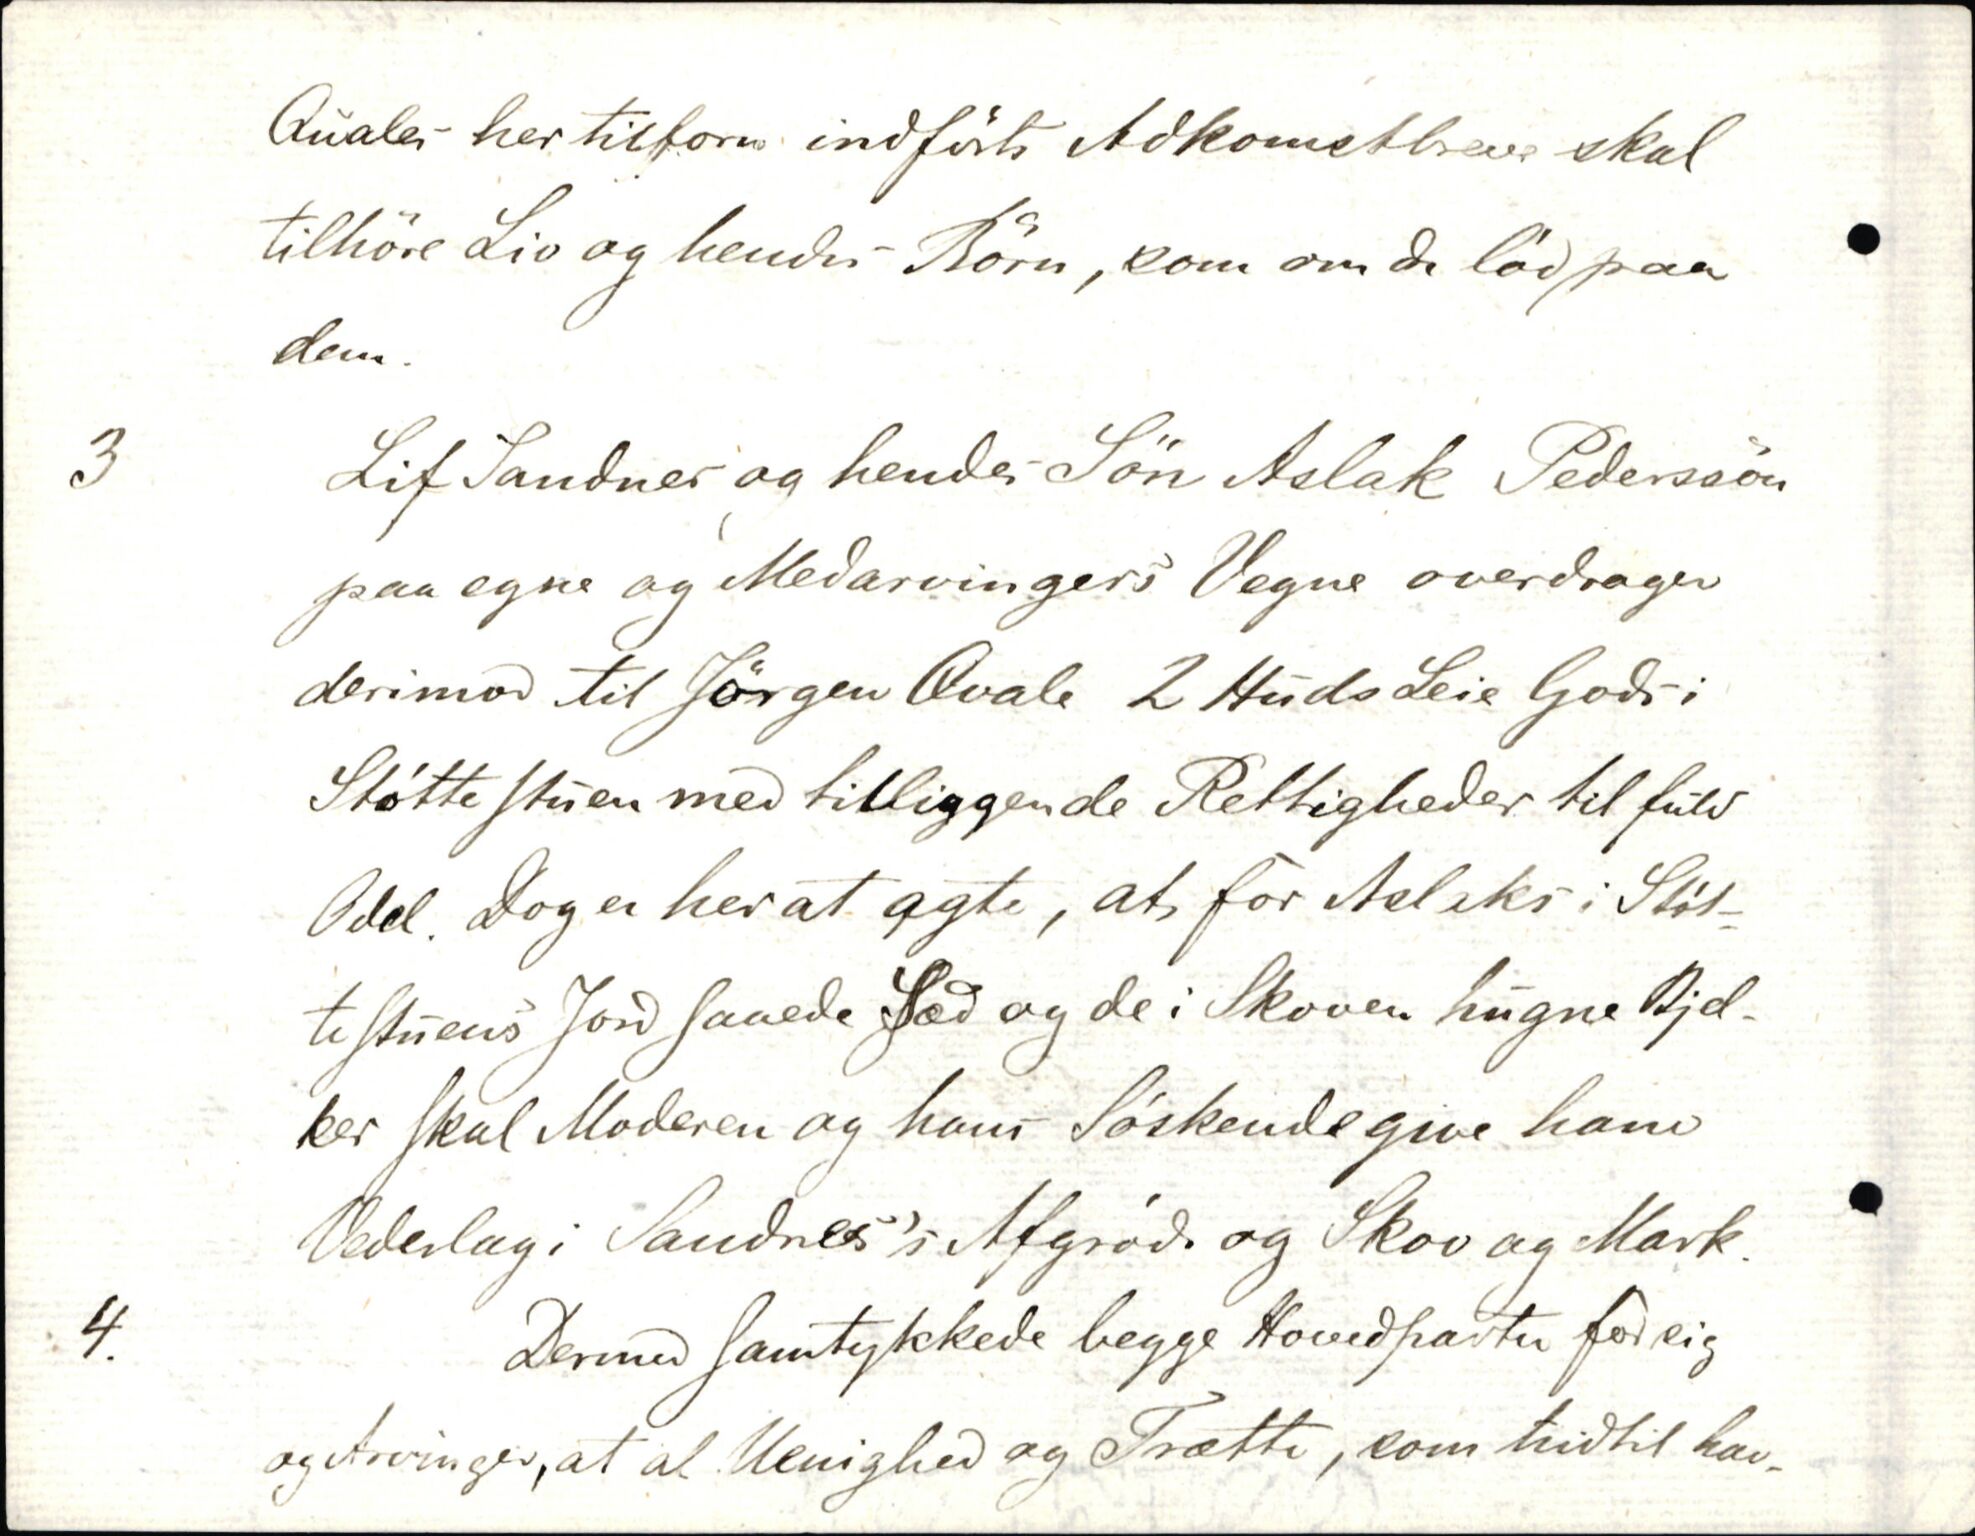 Qvales her tilforn indförte Adkomstbreve skal
tilhöre Liv og hendes Börn, som om de löd paa
dem.
3 Lif Sandnes og hendes Sön Aslak Pederssön
paa egne og Medarvingers Vegne overdrager
derimod til Jörgen Qvale 2 Huds Leie Gods i
Støttestuen med tilliggende Rettigheder til fuld
Odel. Dog er her at agte, at for Aslaks i Støt-
testuens Jord saaede Sæd og de i Skoven hugne Bjel-
ker skal Moderen og hans Søskende give ham
Vederlag i Sandnes's Afgröde og Skov og Mark.
4. Dermed samtykkede begge Hovedparter for sig
og Arvinger, at al Uenighed og Trætte, som hidtil hav-